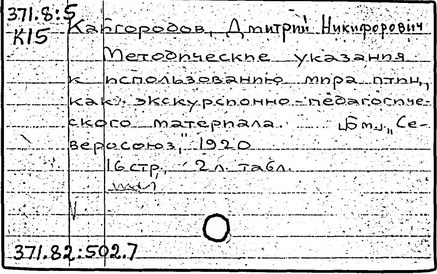 371.8:5
К15
Кайгородов, Дмитрий Никифорович
Методические указания
к использованию мира птиц,
как экскурсионно-педагогиче-
ского материала. "Се-
версоюз", 1920
16 стр., 2 л. табл.
371.82:502.7